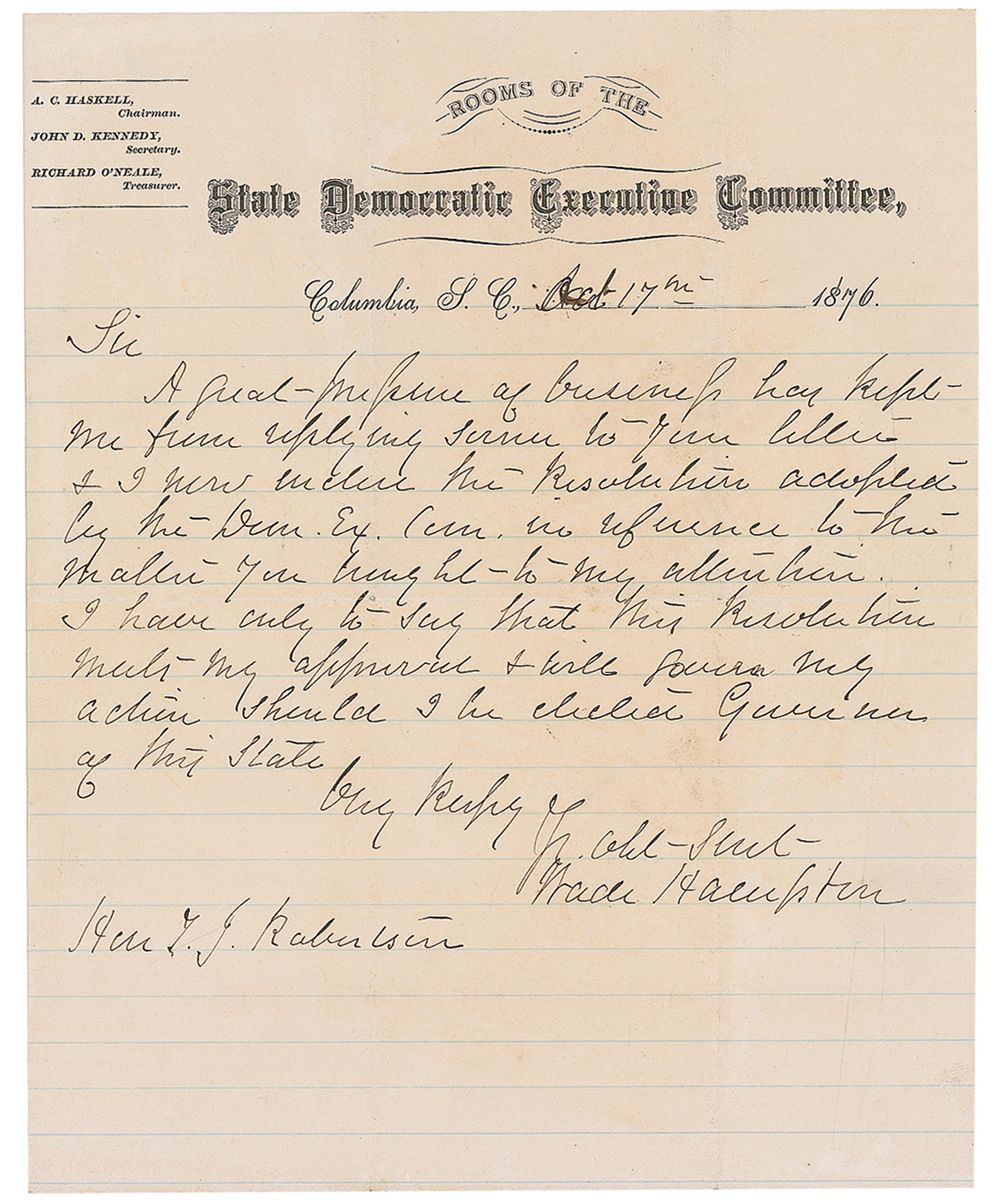 A. C. HASKELL,
Chairman.
JOHN D. KENNEDY,
Secretary.
RICHARD O'NEALE,
Treasurer.
ROOMS OF THE
State Democratic Executive Committee,
Columbia, S. C., Oct 17th 1876.
Sir
A great pressure of business has kept
me from replying sooner to your letter
& I now enclose the Resolution adopted
by the Dem. Ex. Com. in reference to the
matter you brought to my attention.
I have only to say that this Resolution
meets my approval & will govern my
action should I be elected Governor
of this State
Very Respy
Yr. obt Servt
Wade Hampton
Hon T. J. Robertson